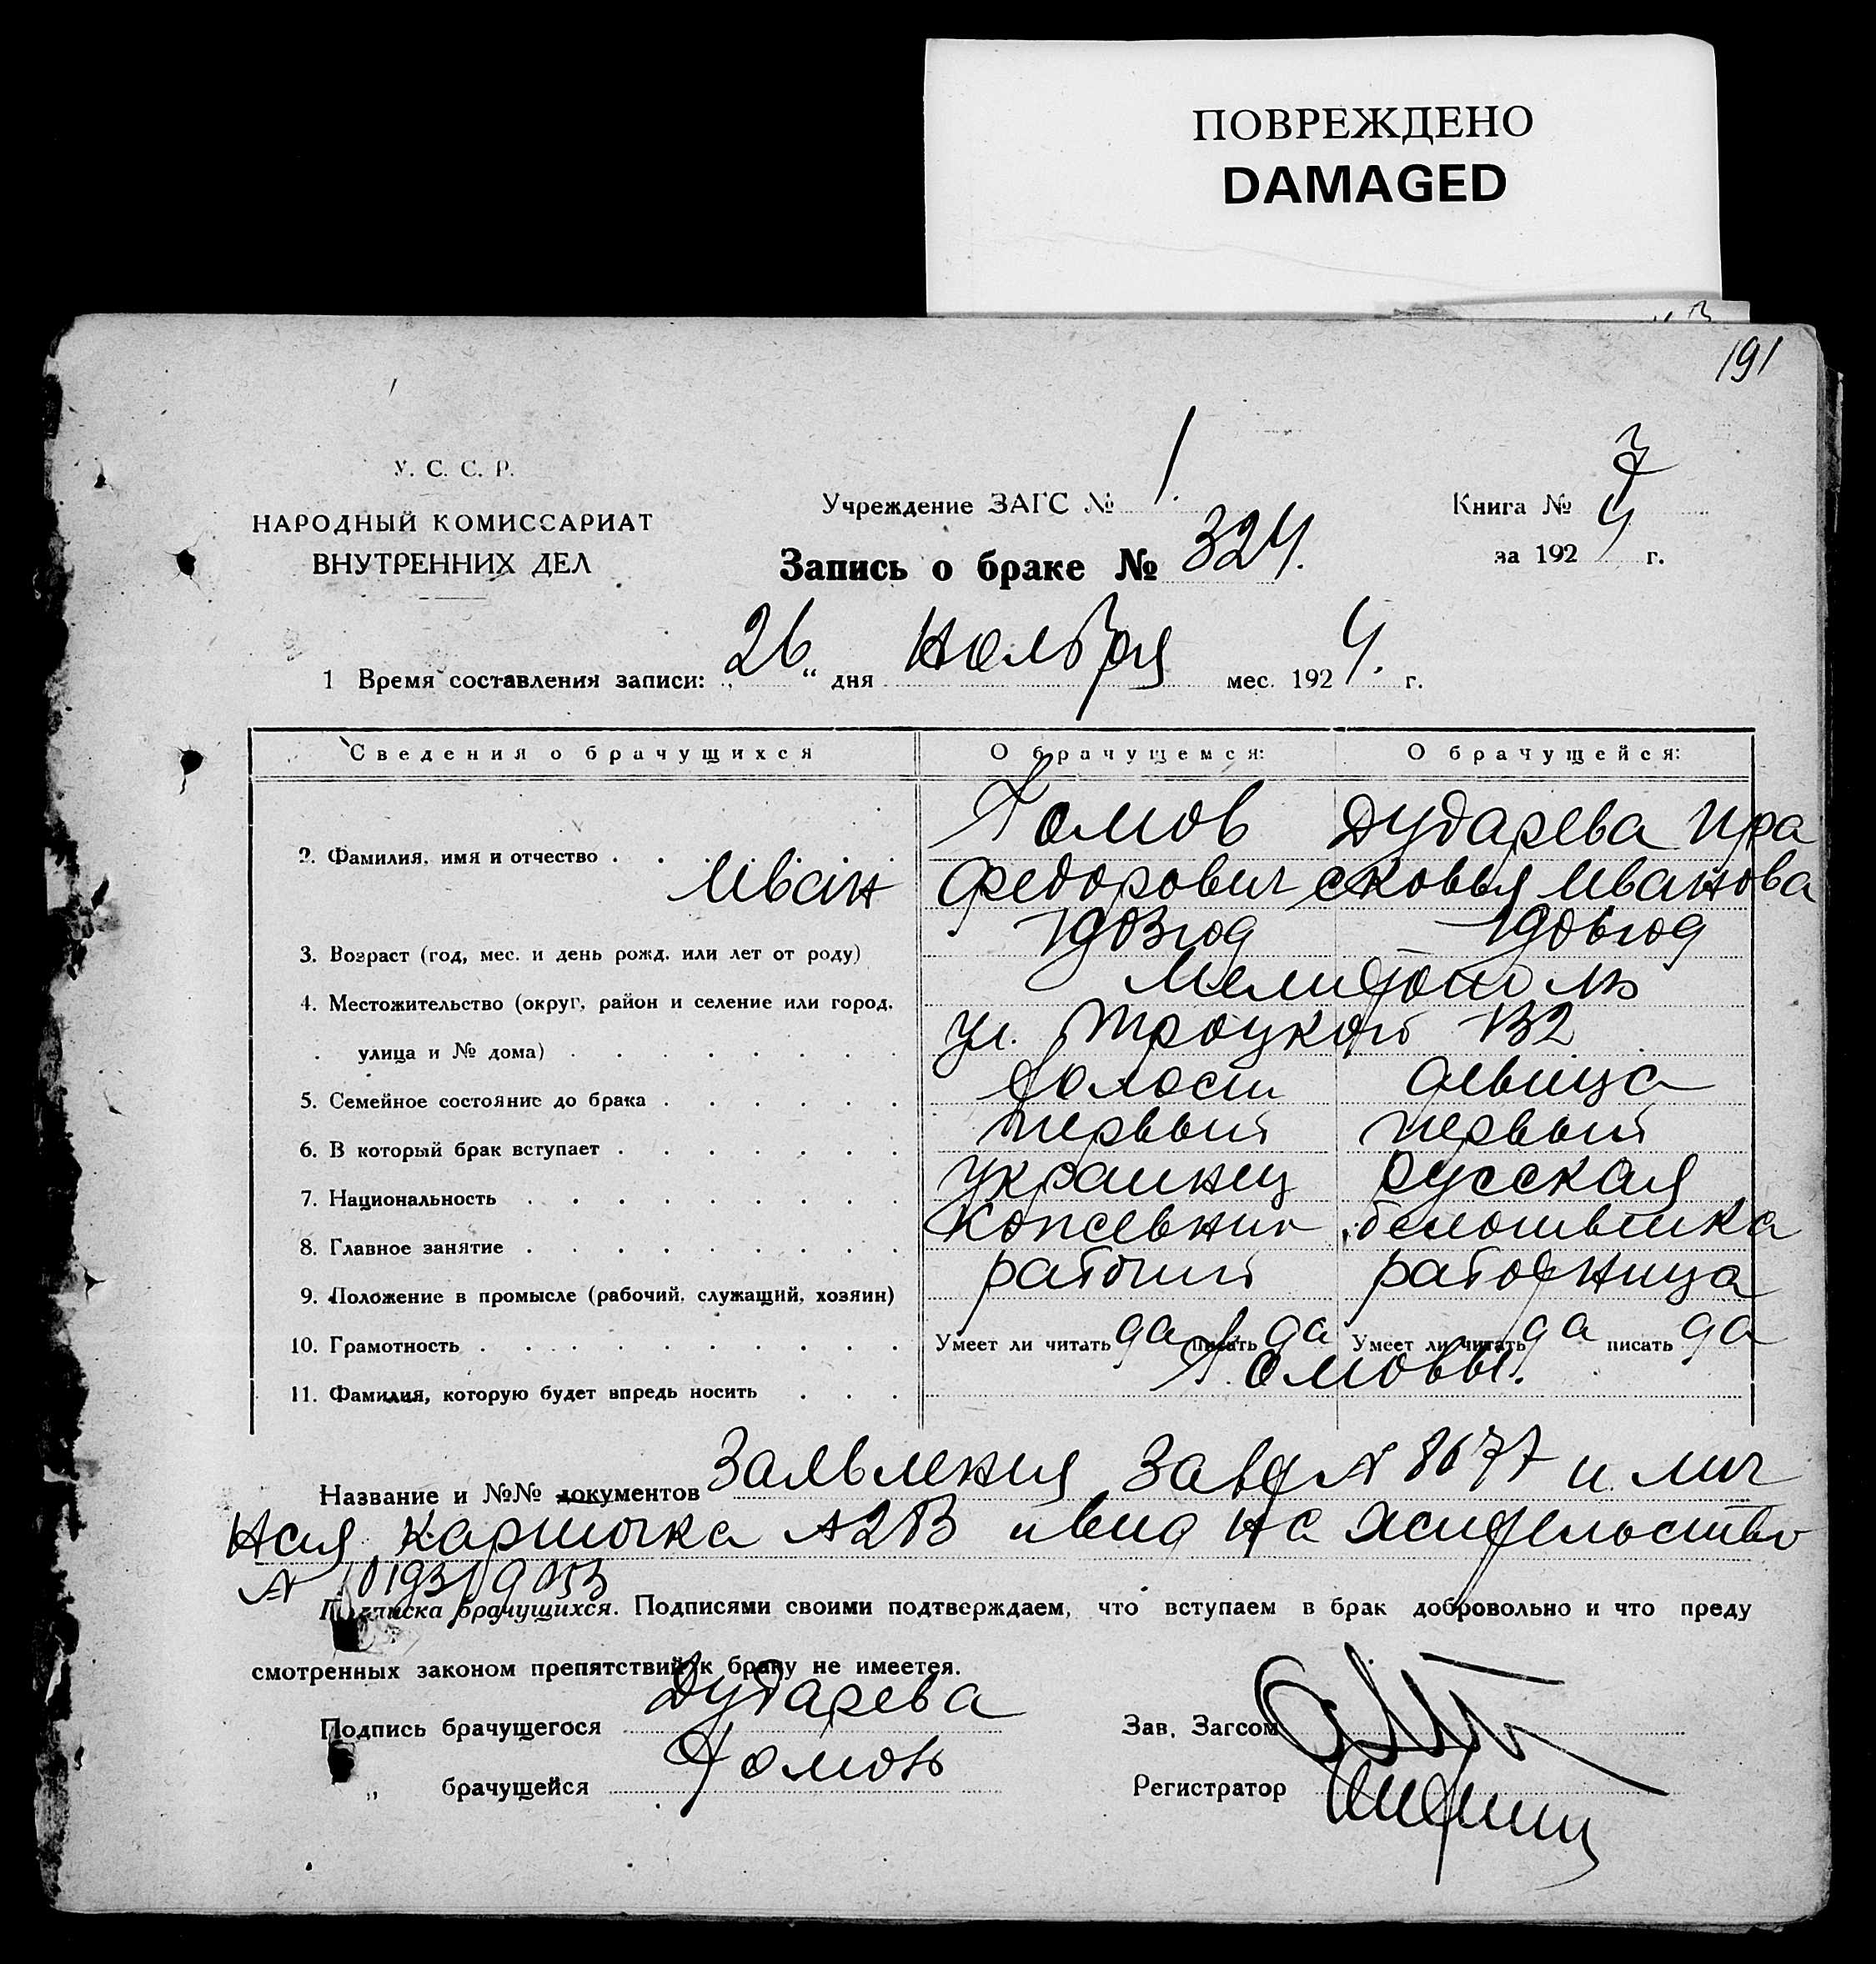 ПОВРЕЖДЕНО
DAMAGED
191
У. С. С. Р.
НАРОДНЫЙ КОМИССАРИАТ
ВНУТРЕННИХ ДЕЛ
Учреждение ЗАГС № 1.
Книга №
Запись о браке № 324.
за 1924 г.
1 Время составления записи: „26“ дня Ноября мес. 1924. г.
Сведения о брачущихся О брачущемся: О брачущейся:
2. Фамилия, имя и отчество Гомов Дударева Пра
Иван Федорович сковья Иванова
3. Возраст (год, мес. и день рожд. или лет от роду) 1903 год год
4. Местожительство (округ, район и селение или город, Мелитополь
улица и № дома) ул. Троцкого 132
5. Семейное состояние до брака холост девица
6. В который брак вступает первый первый
7. Национальность украинец русская
8. Главное занятие кожевник белошвейка
9. Положение в промысле (рабочий, служащий, хозяин) рабочий работница
10. Грамотность Умеет ли читать да писать да Умеет ли читать да писать да
11. Фамилия, которую будет впредь носить Гомовы.
Название и №№ документов Заявления и лич
ная карточка и вид на жительство
№
Подписка брачущихся. Подписями своими подтверждаем, что вступаем в брак добровольно и что преду
смотренных законом препятствий к браку не имеетея.
Подпись брачущегося Дударева
Зав. Загсом
„ брачущейся Гомов
Регистратор